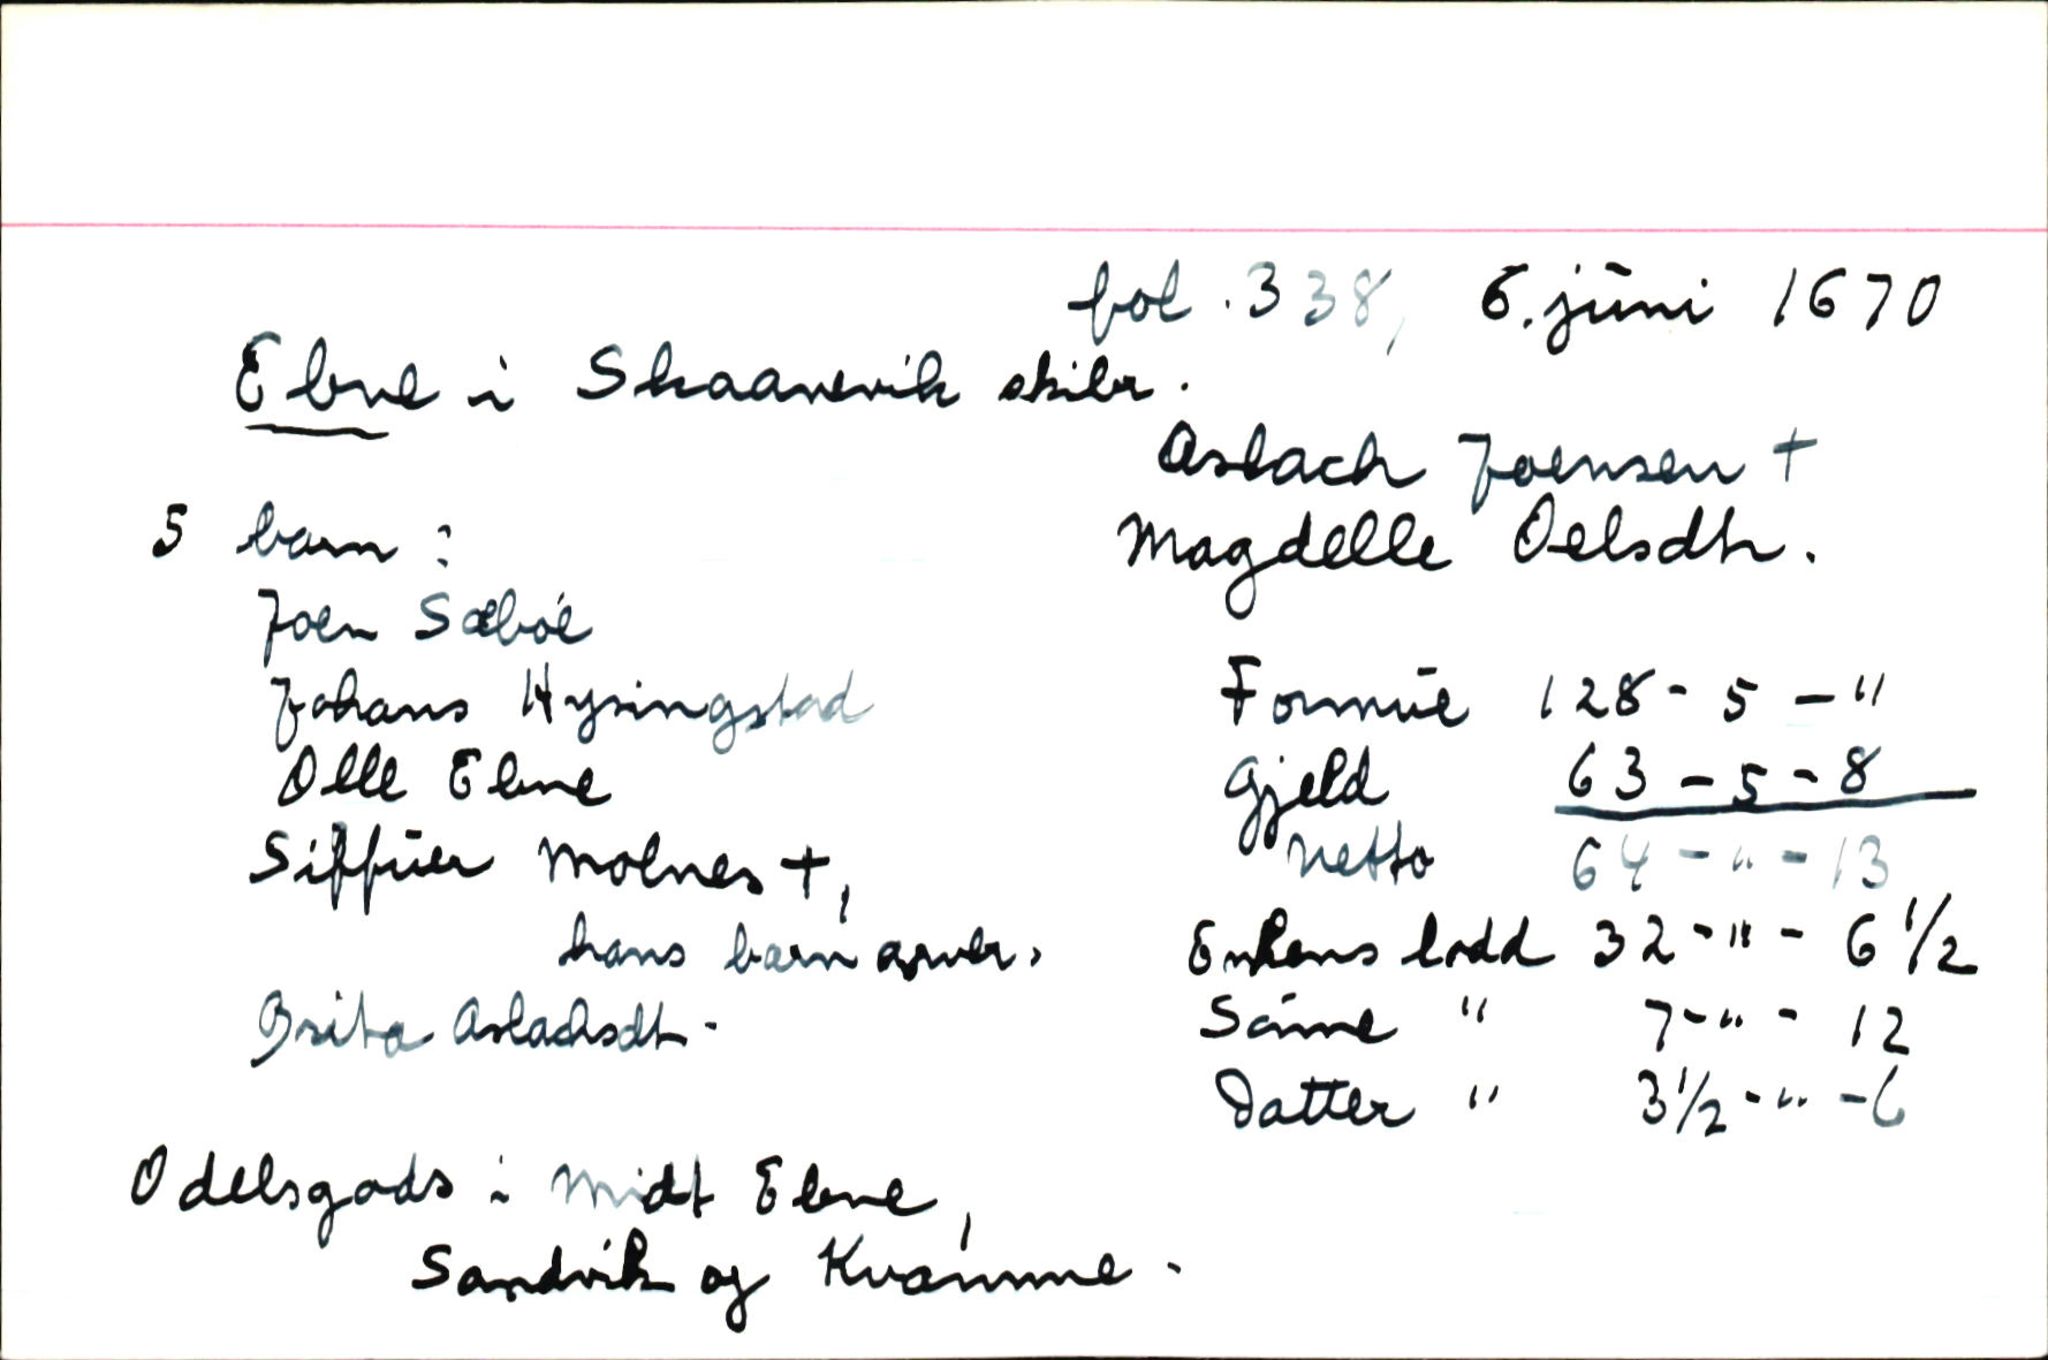 fol. 338, 6. juni 1670
Ebne i Skaanevik skibr.
Aslach Joensen +
Magdelle Oelsdtr.
5 barn:
Joen Sæbøe
Johans Hysingstad
Olle Ebne
Siffuer Molnes +,
hans barn arver,
Brita Aslachsdtr.
Formue 128 - 5 - "
Gjeld 63 - 5 - 8
Netto 64 - " - 13
Enkens lodd 32 - " - 6 1/2
Sönne " 7 - " - 12
Datter " 3 1/2 - " - 6
Odelsgods i Midt Ebne,
Sandvik og Kvamme.